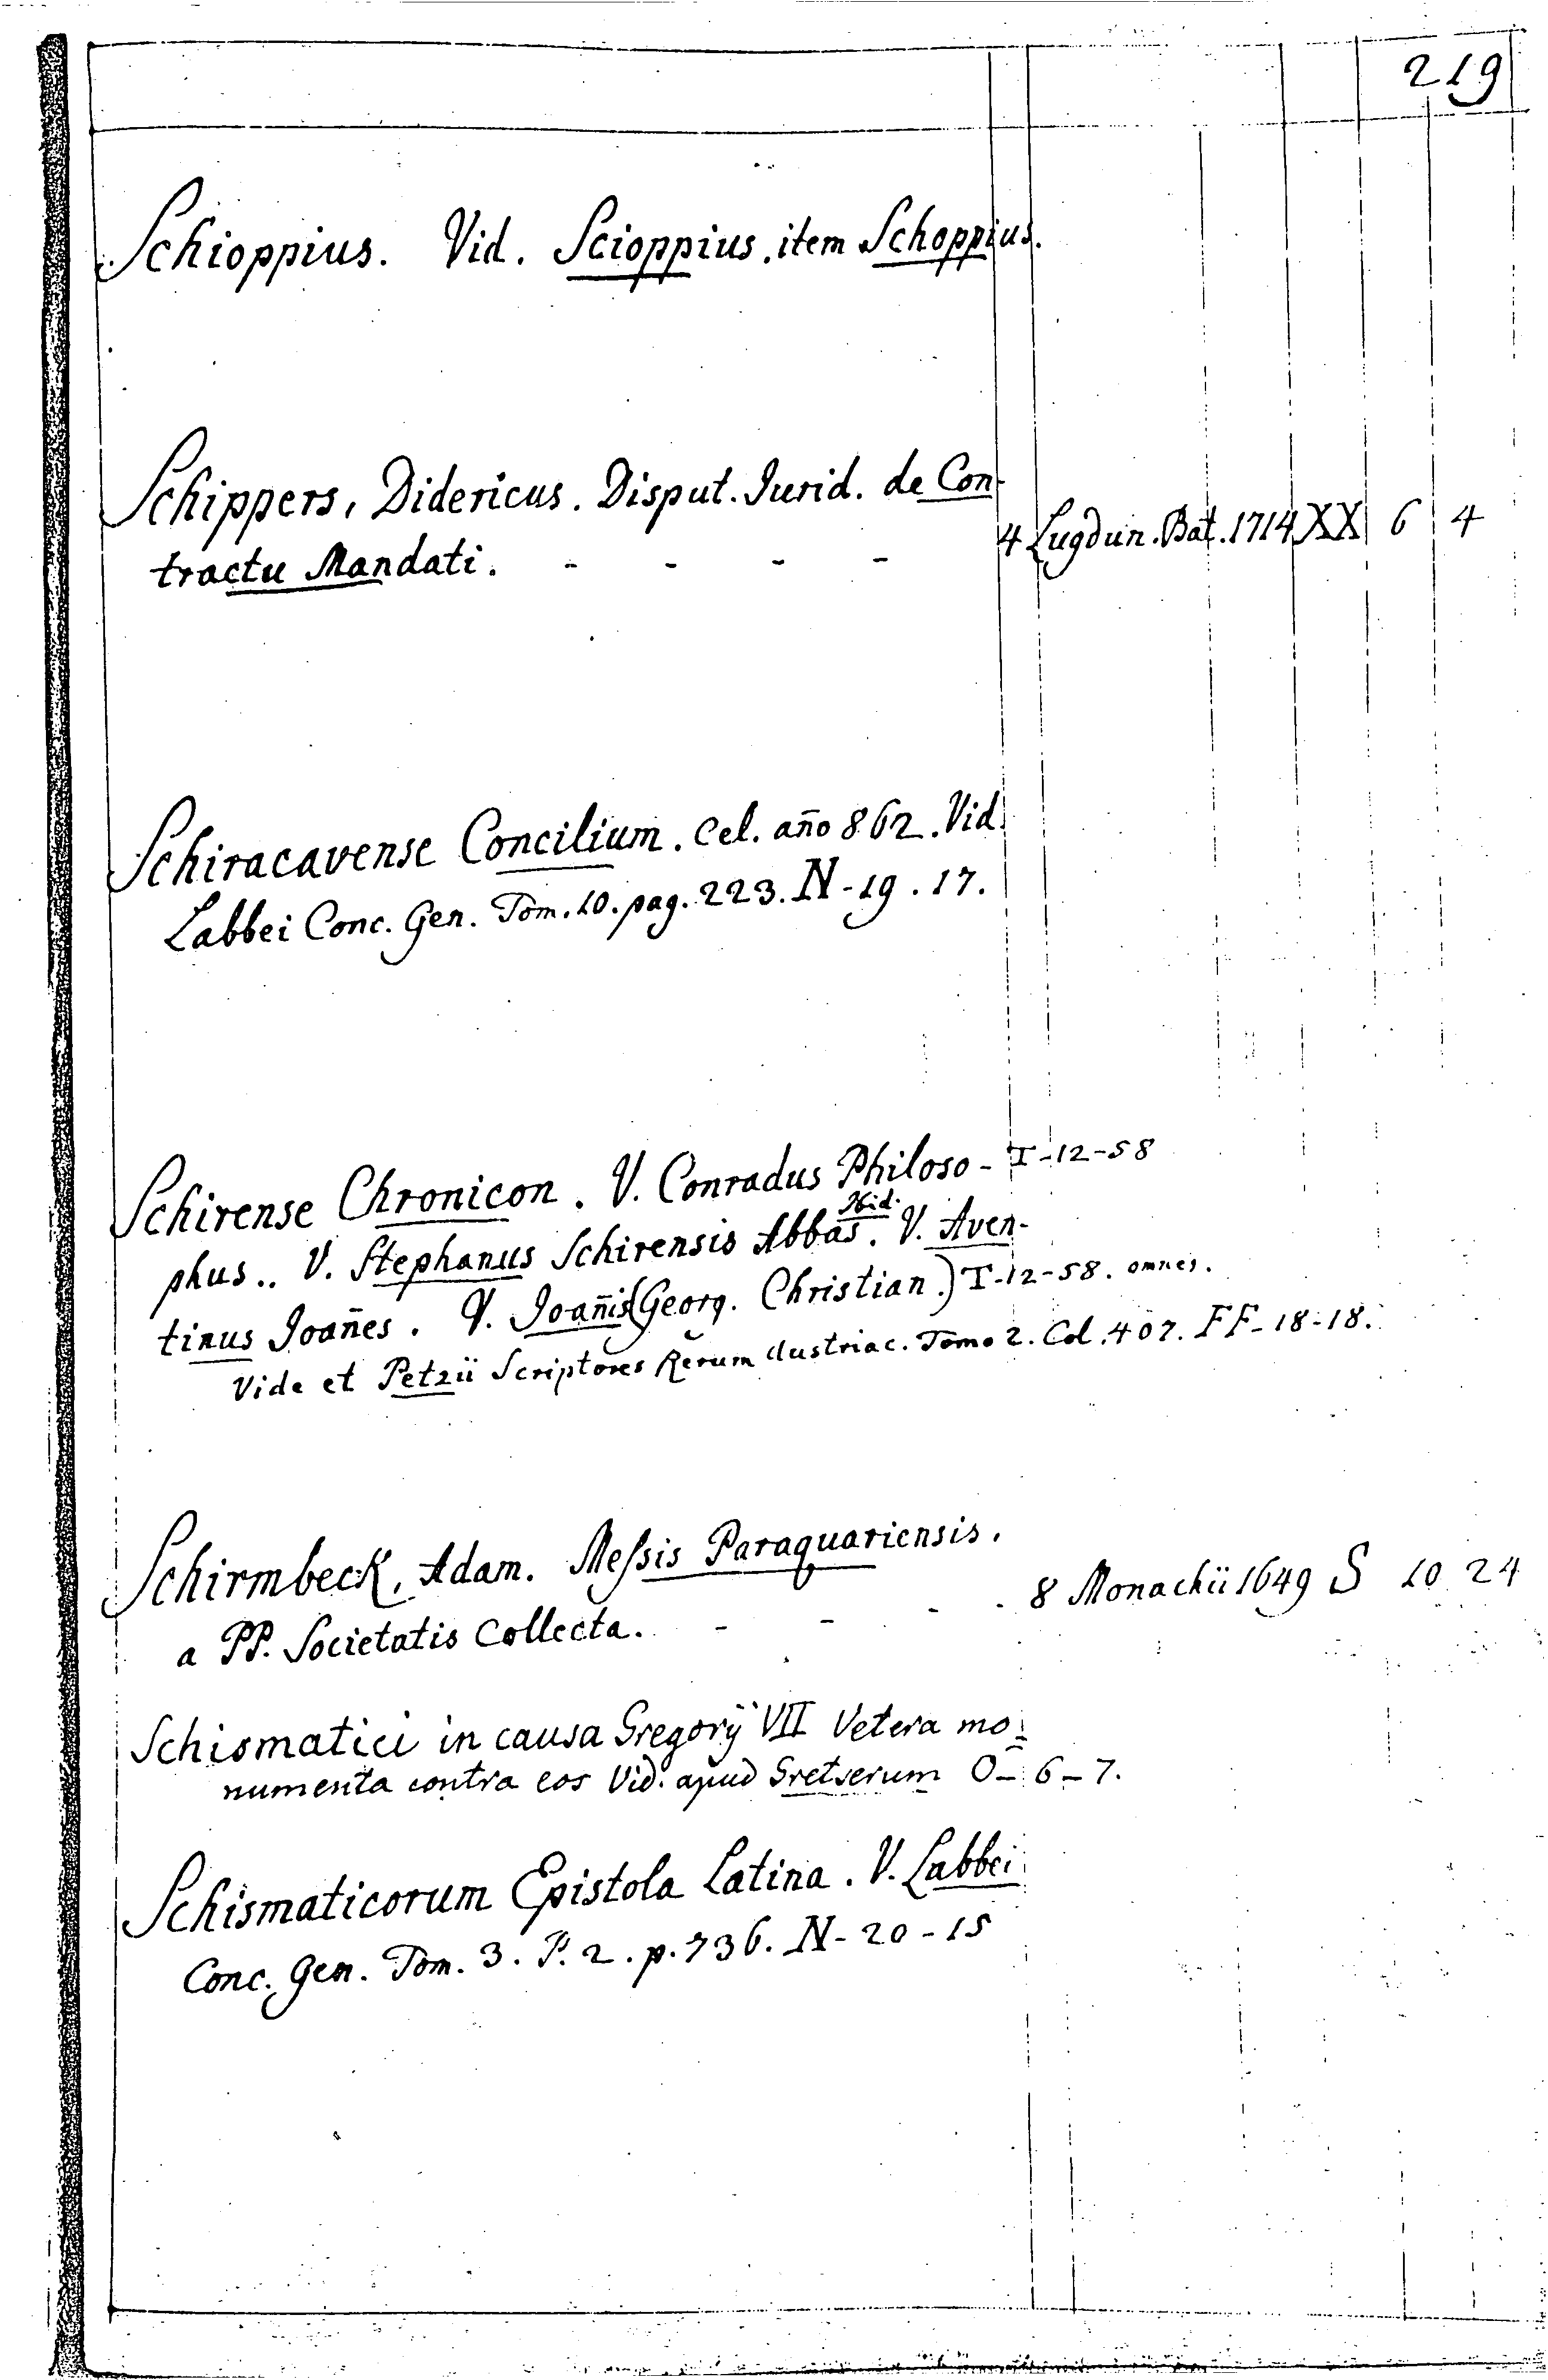 219
Schioppius. Vid. Scioppius, item Schoppius.
Schippers, Didericus. Disput. Jurid. de Con-
tractu Mandati. - - - - 4 Lugdun. Bat. 1714 XX 6 4
Schiracavense Concilium. Cel. año 862. Vid.
Labbei Conc. Gen. Tom. 10. pag. 223. N-19.17.
Schirense Chronicon. V. Conradus Philoso- T-12-58
phus.. V. Stephanus Schirensis Abbas. V. Aven-
tinus Joañes. V. Joañis (Georg. Christian.) T-12-58. omnes.
Vide et Petzii Scriptores Rerum Austriac. Tomo 2. Col. 407. FF-18-18.
Schirmbeck, Adam. Meſsis Paraquariensis.
a PP. Societatis Collecta. - - - - 8 Monachii 1649 S 10 24
Schismatici in causa Gregorÿ VII Vetera mo=
numenta contra eos Vid. apud Gretserum O-6-7.
Schismaticorum Epistola Latina. V. Labbei
Conc. Gen. Tom. 3. P. 2. p. 736. N-20-15